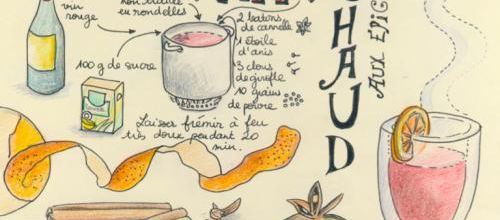 vin
rouge
non traitée
en rondelles
2 batons
de cannelle
1 étoile
d'anis
3 clous
de girofle
10 grains
de poivre
100 g de sucre
Laisser frémir à feu
très doux pendant 20
min.
CHAUD
AUX ÉPIC